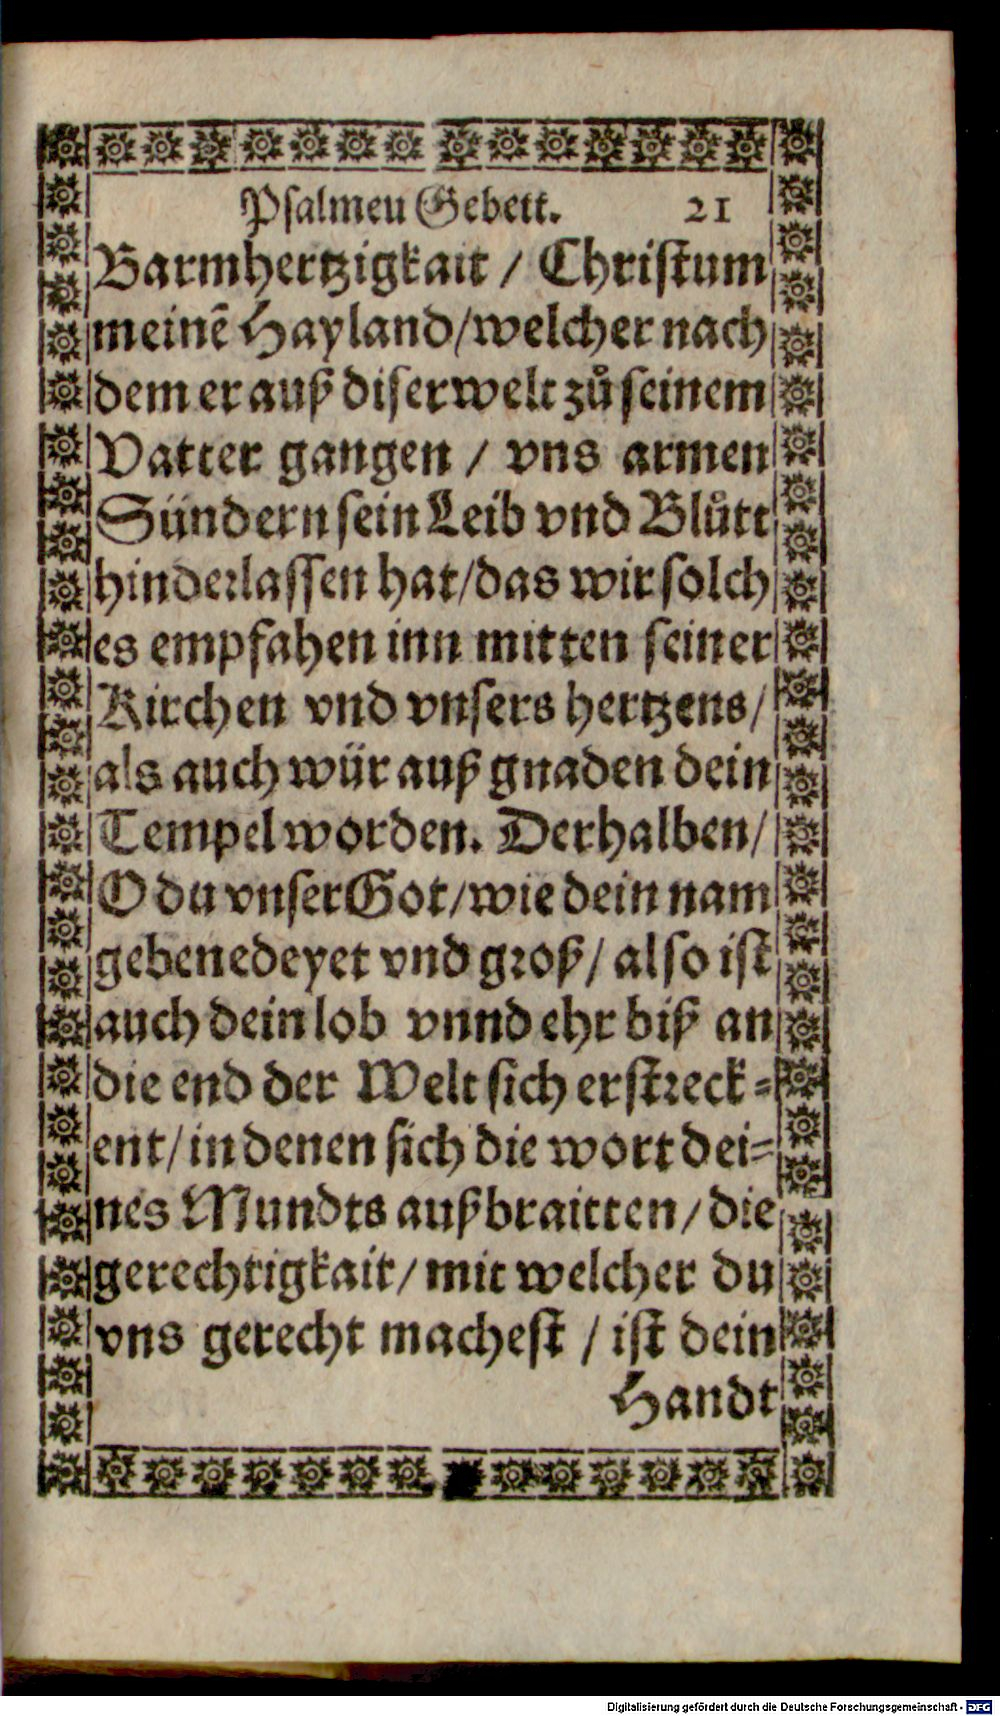 Psalmeu Gebett. 21
Barmhertzigkait / Christum
meinē Hayland/welcher nach
dem er auß diser welt zů seinem
Vatter gangen / vns armen
Sündern sein Leib vnd Blůtt
hinderlassen hat/das wir solch
es empfahen inn mitten seiner
Kirchen vnd vnsers hertzens/
als auch wür auß gnaden dein
Tempel worden. Derhalben/
O du vnser Got/wie dein nam
gebenedeyet vnd groß/ also ist
auch dein lob vnnd ehr biß an
die end der Welt sich erstreck=
ent/in denen sich die wort dei=
nes Mundts außbraitten/die
gerechtigkait/mit welcher du
vns gerecht machest / ist dein
Handt
Digitalisierung gefördert durch die Deutsche Forschungsgemeinschaft - DFG